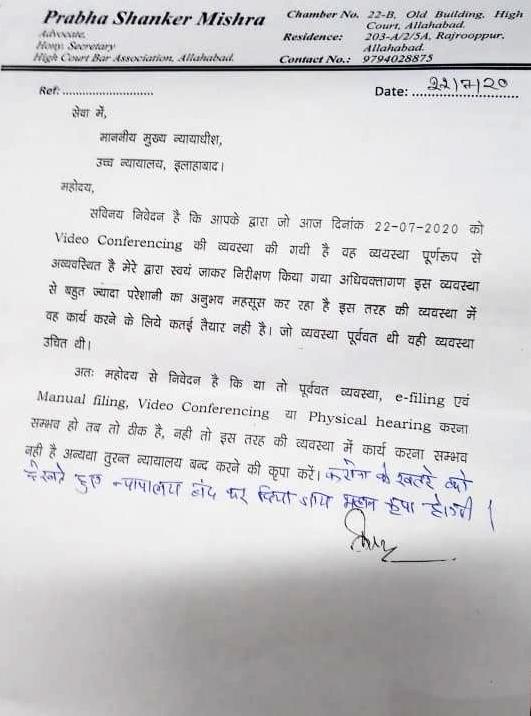 Prabha Shanker Mishra
Advocate,
Hony. Secretary
High Court Bar Association, Allahabad.
Chamber No. 22-B, Old Building, High
Court, Allahabad.
Residence: 203-A/2/5A, Rajrooppur,
Allahabad.
Contact No.: 9794028875
Ref: ............................
Date: 22/7/20
सेवा में,
माननीय मुख्य न्यायाधीश,
उच्च न्यायालय, इलाहाबाद।
महोदय,
सविनय निवेदन है कि आपके द्वारा जो आज दिनांक 22-07-2020 को
Video Conferencing की व्यवस्था की गयी है वह व्ययस्था पूर्णरूप से
अव्यवस्थित है मेरे द्वारा स्वयं जाकर निरीक्षण किया गया अधिवक्तागण इस व्यवस्था
से बहुत ज्यादा परेशानी का अनुभव महसूस कर रहा है इस तरह की व्यवस्था में
वह कार्य करने के लिये कतई तैयार नही है। जो व्यवस्था पूर्ववत थी वही व्यवस्था
उचित थी।
अतः महोदय से निवेदन है कि या तो पूर्ववत व्यवस्था, e-filing एवं
Manual filing, Video Conferencing या Physical hearing करना
सम्भव हो तब तो ठीक है, नही तो इस तरह की व्यवस्था में कार्य करना सम्भव
नही है अन्यथा तुरन्त न्यायालय बन्द करने की कृपा करें। करोना के खतरे को
देखते हुए न्यायालय बंद कर दिया जाय महान कृपा होगी।